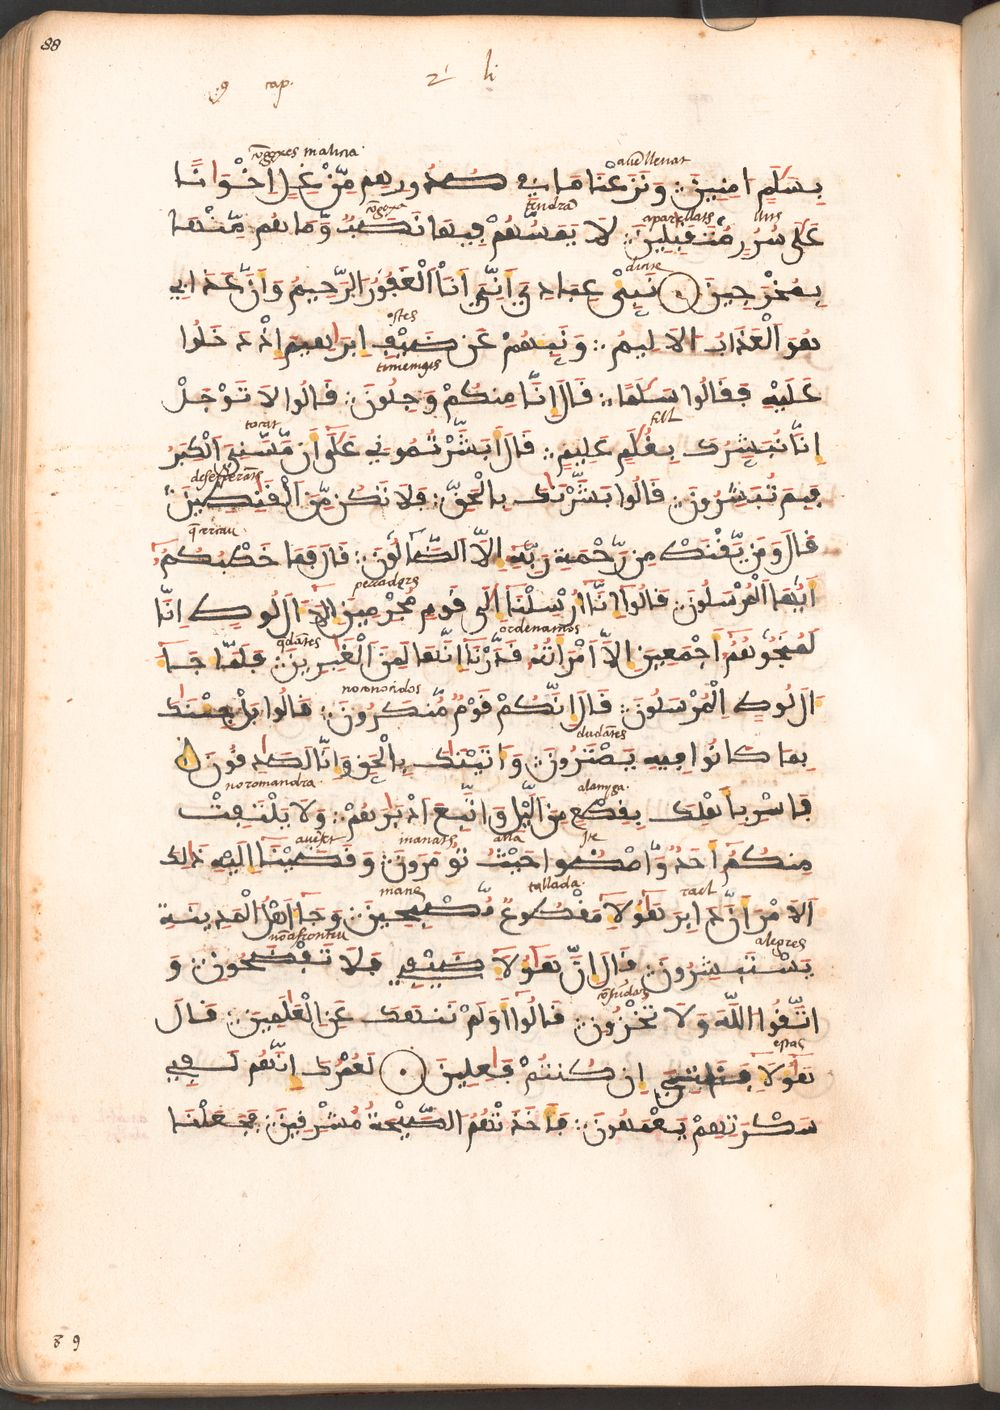 88
9 cap. 2 li
cōgoxes malicia auē llevat
بِسَلَٰمٍ امِنِينَ وَنَزَعْنَا مَا فِي صُدُورِهِم مِّنْ غِلٍّ اِخْوَانًا
cōgoxa tendra aparellats llits
عَلَىٰ سُرُرٍ مُّتَقَٰبِلِينَ لَا يَمَسُّهُمْ فِيهَا نَصَبٌ وَّمَا هُم مِّنْهَا
بِمُخْرَجِينَ نَبِّئْ عِبَادِي أَنِّيَ أَنَا الْغَفُورُ الرَّحِيمُ وَأَنَّ عَذَابِي
ostes
هُوَ الْعَذَابُ الالِيمُ وَنَبِّئْهُمْ عَن ضَيْفِ ابرَٰهِيمَ اِذْ دَخَلُوا
timiemos
عَلَيْهِ فَقَالُوا سَلَٰمًا قَالَ اِنَّا مِنكُمْ وَجِلُونَ قَالُوا لَا تَوْجَلْ
tocat fill
اِنَّا نُبَشِّرُكَ بِغُلَٰمٍ عَلِيمٍ قَالَ أَبَشَّرْتُمُونِي عَلَىٰ أَن مَّسَّنِيَ الْكِبَرُ
desesperats
فَبِمَ تُبَشِّرُونِ قَالُوا بَشَّرْنَٰكَ بِالْحَقِّ فَلَا تَكُن مِّنَ الْقَٰنِطِينَ
q̄ cercau
قَالَ وَمَن يَّقْنَطُ مِن رَّحْمَةِ رَبِّهِ إِلَّا الضَّآلُّونَ قَالَ فَمَا خَطْبُكُمُ
pecadors
أَيُّهَا الْمُرْسَلُونَ قَالُوا إِنَّا أُرْسِلْنَا إِلَىٰ قَوْمٍ مُّجْرِمِينَ إِلَّا آلَ لُوطٍ اِنَّا
q̄dates ordenamos
لَمُنَجُّوهُمُ أَجْمَعِينَ إِلَّا امْرَأَتَهُ قَدَّرْنَا إِنَّهَا لَمِنَ الْغَٰبِرِينَ فَلَمَّا جَآءَ
no conocidos
آلَ لُوطٍ الْمُرْسَلُونَ قَالَ اِنَّكُمْ قَوْمٌ مُّنكَرُونَ قَالُوا بَلْ جِئْنَٰكَ
dudates
بِمَا كَانُوا فِيهِ يَمْتَرُونَ وَأَتَيْنَٰكَ بِالْحَقِّ وَإِنَّا لَصَٰدِقُونَ
no romandra
فَاسْرِ بِأَهْلِكَ بِقِطْعٍ مِّنَ الَّيْلِ وَاتَّبِعَ اَدْبَٰرَهُمْ وَلَا يَلْتَفِتْ
manats
مِنكُمُ أَحَدٌ وَّامْضُوا حَيْثُ تُومَرُونَ وَقَضَيْنَا إِلَيْهِ ذَٰلِكَ
tallada
الَامْرَ أَنَّ دَابِرَ هَٰؤُلَآءِ مَقْطُوعٌ مُّصْبِحِينَ وَجَآءَ اَهْلُ الْمَدِينَةِ
alegres
يَسْتَبْشِرُونَ قَالَ إِنَّ هَٰؤُلَآءِ ضَيْفِي فَلَا تَفْضَحُونِ وَ
اتَّقُوا اللَّهَ وَلَا تُخْزُونِ قَالُوا أَوَلَمْ نَنْهَكَ عَنِ الْعَٰلَمِينَ قَالَ
estas
هَٰؤُلَآءِ بَنَاتِي إِن كُنتُمْ فَٰعِلِينَ لَعَمْرُكَ اِنَّهُمْ لَفِي
سَكْرَتِهِمْ يَعْمَهُونَ فَأَخَذَتْهُمُ الصَّيْحَةُ مُشْرِقِينَ فَجَعَلْنَا
89